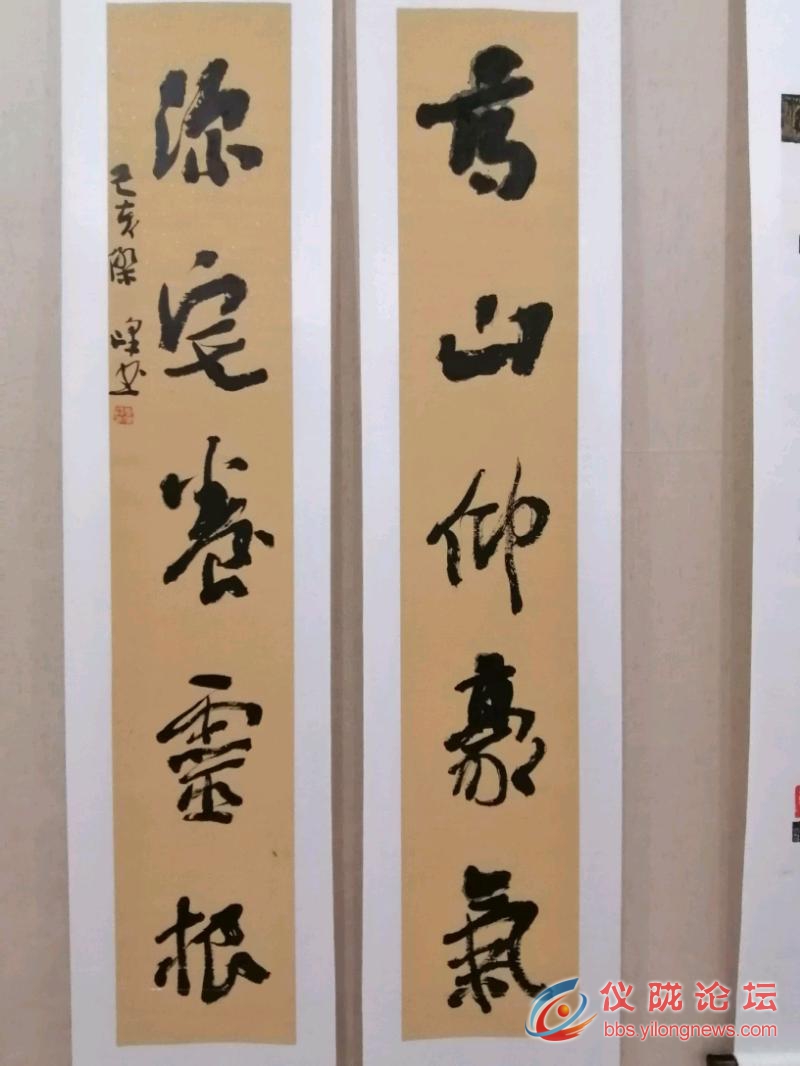 高山仰豪氣
深宅養靈根
己亥 峰书
仪陇论坛
bbs.yilongnews.com